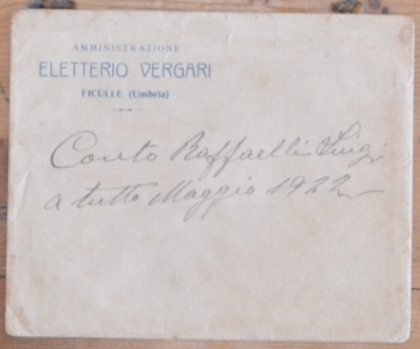 AMMINISTRAZIONE
ELETTERIO VERGARI
FICULLE (Umbria)
Conto Raffaelli Luigi
a tutto Maggio 1922